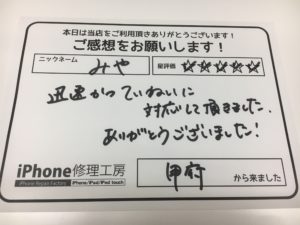 本日は当店をご利用頂きありがとうございます！
ご感想をお願いします！
ニックネーム みや 星評価 ☆☆☆☆☆
迅速かつていねいに
対応して頂きました。
ありがとうございました！
iPhone修理工房 甲府 から来ました
iPhone Repair Factory iPhone/iPad/iPod touch